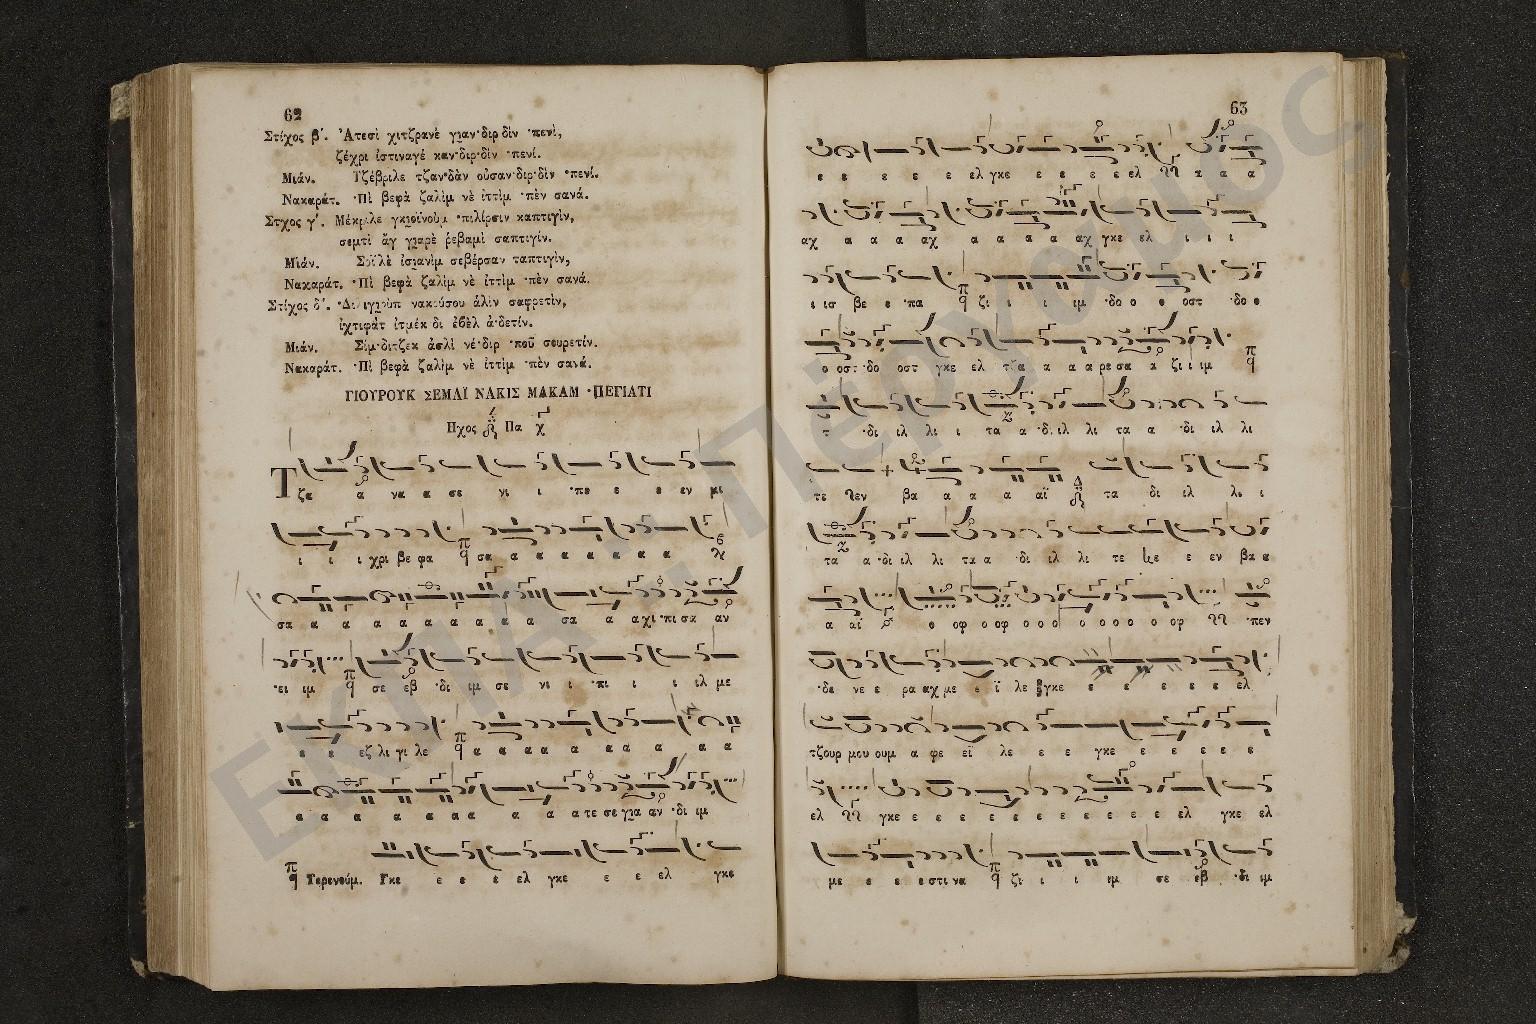 62
Στίχος β΄. Ἀτεσὶ χιτζρανὲ γιαν·διρ δὶν ·πενὶ,
ζέχρι ἰστιναγέ καν·διρ·δὶν ·πενί.
Μιάν. Τζέβριλε τζαν·δὰν οὐσαν·διρ·δὶν ·πενί.
Νακαράτ. ·Πὶ βεφὰ ζαλὶμ νὲ ἰττὶμ ·πὲν σανά.
Στχος γ΄. καπτιγὶν,
σεμτὶ ἄγ γιαρὲ ῥεβαμὶ σαπτιγίν.
Μιὰν. σεβέρσαν ταπτιγὶν,
Νακαράτ. ·Πὶ βεφὰ ζαλὶμ νὲ ἰττὶμ ·πὲν σανά.
Στίχος δ΄. νακούσου ἀλὶν σαφρετὶν,
ἰχτιφὰτ ἰτμέκ δι ἐβὲλ ἀ·δετίν.
Μιάν. Σίμ·διτζεκ ἀσλὶ νέ·διρ ·ποῦ σουρετίν.
Νακαράτ. ·Πὶ βεφὰ ζαλὶμ νὲ ἰττὶμ ·πὲν σανά.
ΓΙΟΥΡΟΥΚ ΣΕΜΑΪ ΝΑΚΙΣ ΜΑΚΑΜ ·ΠΕΓΙΑΤΙ
Ηχος Πα
Τζα α να α σε νι ι ·πε ε ε εν μι
ι ι ι χρι βε φα σα α α α α α α α
σα α α α α α α α α α σα α α χι ·πι σα αν
·ει ιμ σε εβ ·δι ιμ σε νι ι ·πι ι ι ιλ με
ε ε εζ λι γι λε α α α α α α α α α
α α α α α α α α α α τε σε για αν ·δι ιμ
Τερενούμ. Γκε ε ε ε ελ γκε ε ε ελ γκε
63
ε ε ε ε ε ελ γκε ε ε ε ε ελ α α α
αχ α α α αχ α α α α αχ γκε ελ ι ι ι
ι ισ βε ε ·πα ζι ι ι ι ιμ ·δο ο ο οστ ·δο ο
ο οστ ·δο οστ γκε ελ τζα α α α ρε σα α ζι ι ιμ
·δι ιλ λι ι τα α ·δι ιλ λι τα α ·δι ιλ λι
τε βα α α α αϊ τα δι ιλ λι ι
τα α ·δι ιλ λι τα α ·δι ιλ λι τε ε εν βα α
α αϊ ο οφ ο οφ ο ο ο ο ο ο ο ο οφ ·πεν
·δε νε ε ρα αχ με ε ϊ λε γκε ε ε ε ε ε ελ
τζουρ μου ουμ α φε εϊ λε ε ε γκε ε ε ε ε ε
ελ γκε ε ε ε ε ε ε ε ε ε ε ε ελ γκε ελ
με ε ε ε στι να ζι ι ι ι ιμ σε εβ ·δι ιμ
ΕΚΠΑ - Πέργαμος